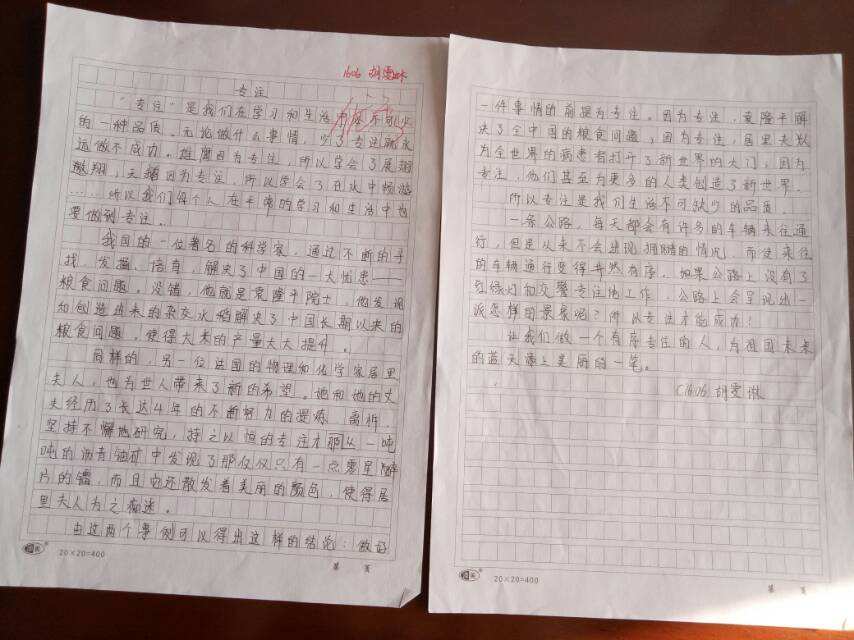 1606 胡雯咻
专注
“专注”是我们在学习和生活中必不可少
的一种品质。无论做什么事情，少了专注就永
远做不成功。雄鹰因为专注，所以学会了展翅
翱翔；天鹅因为专注，所以学会了在水中畅游
……所以我们每个人在平常的学习和生活中也
要做到专注。
我国的一位著名的科学家，通过不断的寻
找、发掘、培育，解决了中国的一大忧患——
粮食问题。没错，他就是袁隆平院士，他发现
和创造出来的杂交水稻解决了中国长期以来的
粮食问题，使得大米的产量大大提升。
同样的，另一位法国的物理和化学家居里
夫人，也为世人带来了新的希望。她和她的丈
夫经历了长达4年的不断努力的提炼、离析，
坚持不懈地研究，持之以恒的专注才那从一吨
吨的沥青铀矿中发现了那仅仅只有一点零星碎
片的镭，而且也还散发着美丽的颜色，使得居
里夫人为之痴迷。
由这两个事例可以得出这样的结论：做好
20×20=400
第 页
一件事情的前提为专注。因为专注，袁隆平解
决了全中国的粮食问题；因为专注，居里夫人
为全世界的病患者打开了新世界的大门；因为
专注，他们甚至为更多的人类创造了新世界。
所以专注是我们生活不可缺少的品质。
一条公路，每天都会有许多的车辆来往通
行，但是从来不会出现拥堵的情况，而使来往
的车辆通行变得井然有序，如果公路上没有了
红绿灯和交警专注地工作，公路上会呈现出一
派怎样的景象呢？所以专注才能成功！
让我们做一个有序专注的人，为祖国未来
的蓝天添上美丽的一笔。
C1606 胡雯咻
20×20=400
第 页